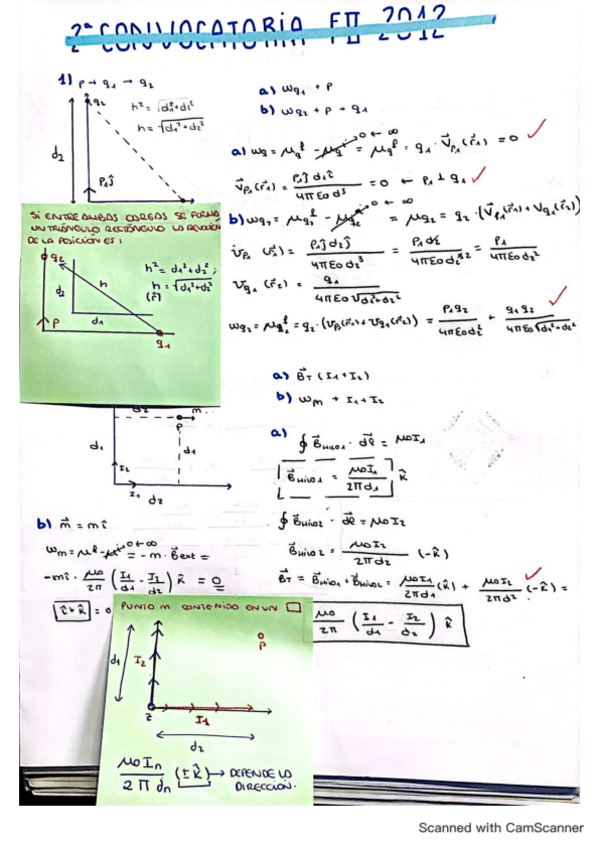 2ª CONVOCATORIA FII 2012
1) P → q₁ → q₂
a) Wq₁ + P
b) Wq₂ + P + q₁
q₂
h² = d₁²+d₂²
h = √d₁²+d₂²
d₂
P₁ĵ
a) Wq = μqᶠ - μq⁰ ← ∞ = μqᶠ = q₁ · V⃗p₁(r⃗₁) = 0
V⃗p₁(r⃗₁) = P₁ĵ d₁î / 4πε₀d³ = 0 ← P₁ ⊥ q₁
SI ENTRE AMBAS CARGAS SE FORMA
UN TRIÁNGULO RECTÁNGULO LA
DE LA POSICIÓN ES:
q₂
h² = d₁²+d₂²;
h = √d₁²+d₂²
(r̂)
d₂
h
d₁
P
q₁
b) Wq₂ = = μq₂ = q₂ · (V⃗p₁(r⃗₁) + Vq₁(r⃗₂))
V⃗p₁ (r⃗₁) = P₁ĵ d₂ĵ / 4πε₀d₂³ = P₁d₂ / 4πε₀d₂³ = P₁ / 4πε₀d₂²
Vq₁ (r⃗₂) = q₁ / 4πε₀ √d₁²+d₂²
Wq₂ = = q₂ · (Vp₁(r⃗₁) + Vq₁(r⃗₂)) = P₁q₂ / 4πε₀d₂² + q₁q₂ / 4πε₀√d₁²+d₂²
a) B⃗T (I₁+I₂)
b) Wm + I₁+I₂
d₂
m
P
d₁
d₁
I₂
I₁
d₂
a) ∮ B⃗HILO1 · dl⃗ = μ₀I₁
B⃗HILO1 = μ₀I₁ / 2πd₁ k̂
∮ B⃗HILO2 · dl⃗ = μ₀I₂
B⃗HILO2 = μ₀I₂ / 2πd₂ (-k̂)
B⃗T = B⃗HILO1 + B⃗HILO2 = μ₀I₁ / 2πd₁ (k̂) + μ₀I₂ / 2πd₂ (-k̂) =
μ₀ / 2π (I₁/d₁ - I₂/d₂) k̂
b) m⃗ = mî
0 ← ∞
Wm = = -m · B⃗ext =
-mî · μ₀/2π (I₁/d₁ - I₂/d₂) k̂ = 0
= 0
PUNTO M CONTENIDO EN UN □
d₁
I₂
P
Z
I₁
d₂
μ₀In / 2π dn (±k̂) → DEPENDE LA
DIRECCIÓN.
Scanned with CamScanner